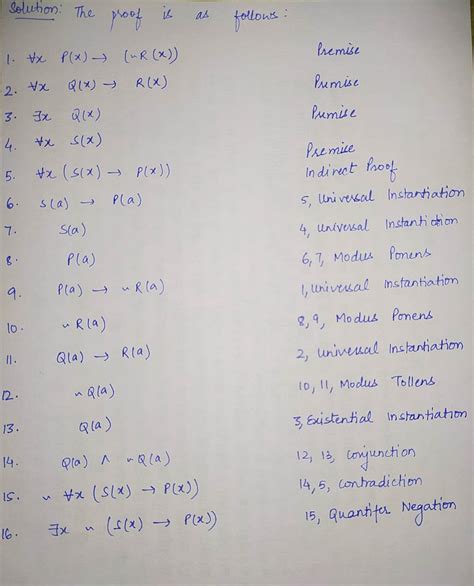 Solution: The proof is as follows:
1. ∀x P(x) → (~R(x)) Premise
2. ∀x Q(x) → R(x) Premise
3. ∃x Q(x) Premise
4. ∀x S(x) Premise
5. ∀x (S(x) → P(x)) Indirect Proof
6. S(a) → P(a) 5, Universal Instantiation
7. S(a) 4, Universal Instantiation
8. P(a) 6, 7, Modus Ponens
9. P(a) → ~R(a) 1, Universal Instantiation
10. ~R(a) 8, 9, Modus Ponens
11. Q(a) → R(a) 2, Universal Instantiation
12. ~Q(a) 10, 11, Modus Tollens
13. Q(a) 3, Existential Instantiation
14. Q(a) ∧ ~Q(a) 12, 13, Conjunction
15. ~ ∀x (S(x) → P(x)) 14, 5, Contradiction
16. ∃x ~ (S(x) → P(x)) 15, Quantifer Negation